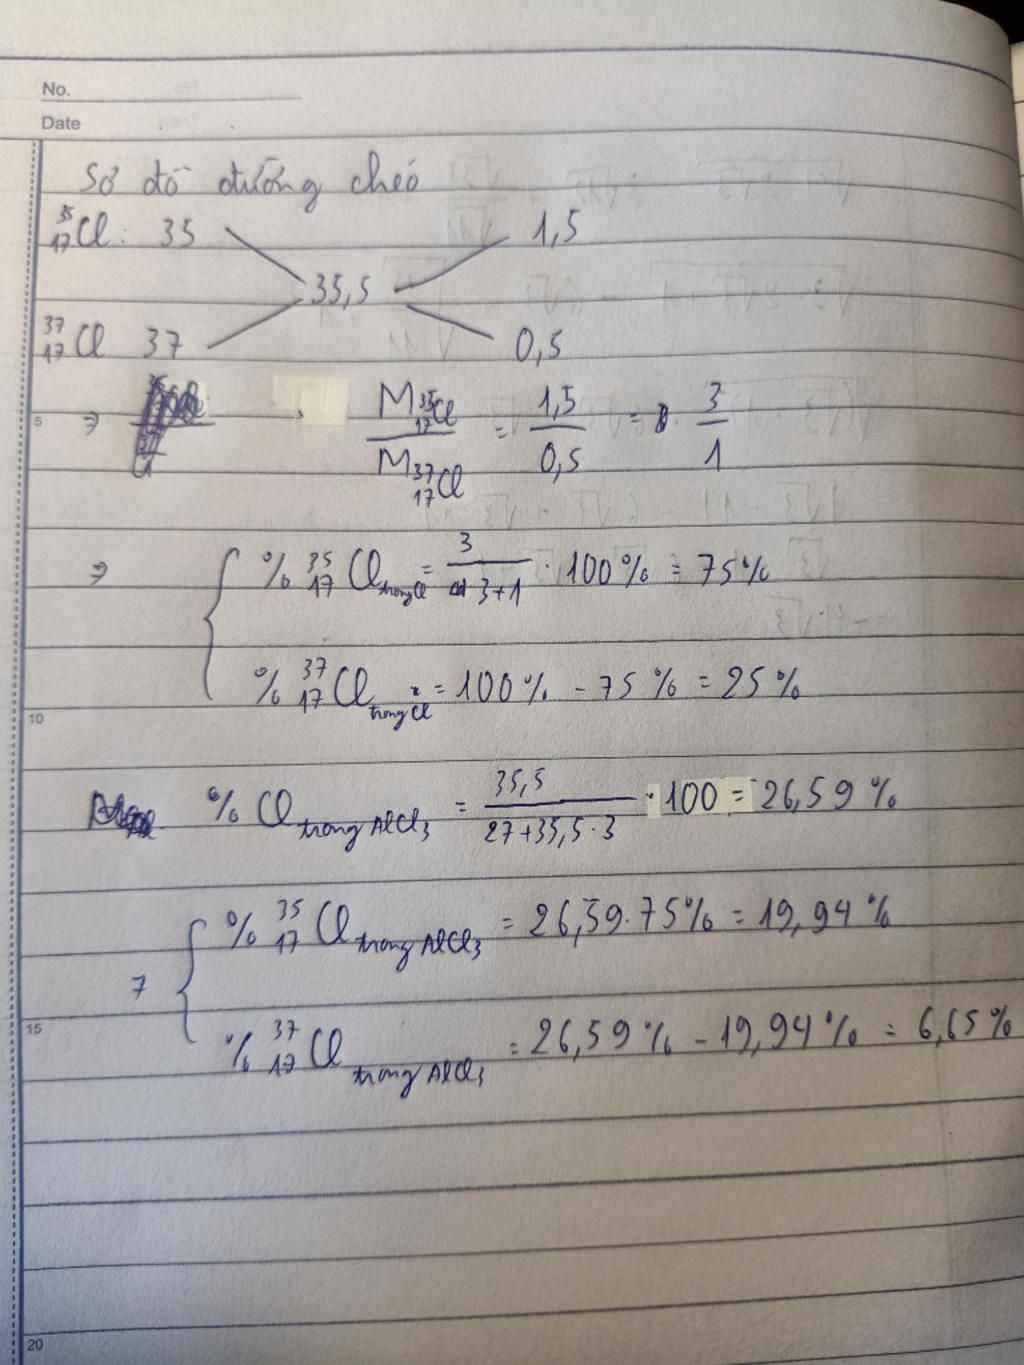 No.
Date
Sơ đồ đường chéo
³⁵₁₇Cl: 35 1,5
35,5
³⁷₁₇Cl 37 0,5
5
⇒ M ³⁵₁₇Cl / M ³⁷₁₇Cl = 1,5 / 0,5 = 3 / 1
⇒ { % ³⁵₁₇Cl trong Cl = 3 / 3+1 · 100% = 75%
% ³⁷₁₇Cl trong Cl = 100% - 75% = 25%
10
% Cl trong AlCl₃ = 35,5 / 27+35,5·3 · 100 = 26,59%
{ % ³⁵₁₇Cl trong AlCl₃ = 26,59·75% = 19,94%
15
% ³⁷₁₇Cl trong AlCl₃ = 26,59% - 19,94% = 6,65%
20